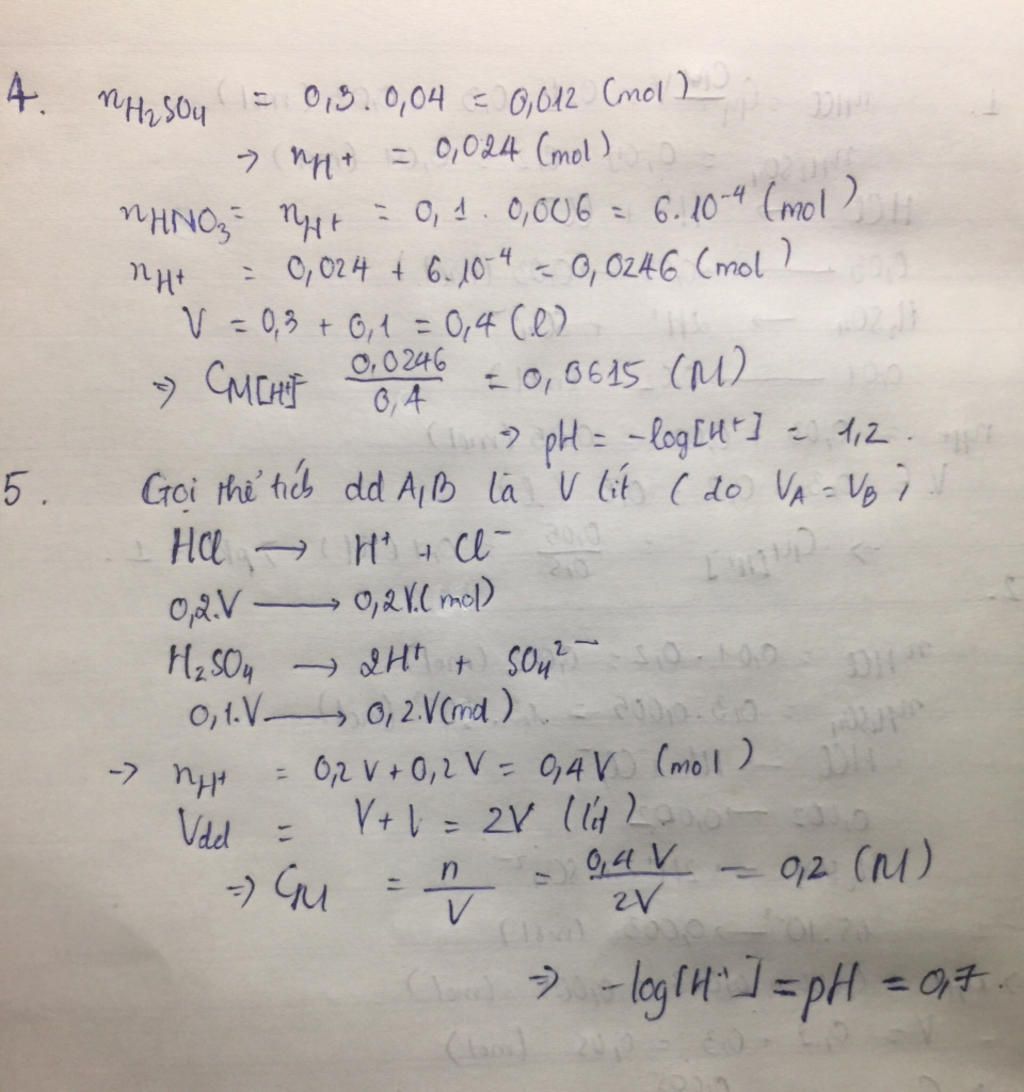 4. nH₂SO₄ = 0,3 . 0,04 = 0,012 (mol)
→ nH+ = 0,024 (mol)
nHNO₃ = nH+ = 0,1 . 0,006 = 6.10⁻⁴ (mol)
nH+ = 0,024 + 6.10⁻⁴ = 0,0246 (mol)
V = 0,3 + 0,1 = 0,4 (l)
⇒ CM[H+] 0,0246/0,4 = 0,0615 (M)
⇒ pH = -log[H+] = 1,2.
5. Gọi thể tích dd A,B là V lít (do VA = VB)
HCl → H+ + Cl⁻
0,2.V → 0,2V.(mol)
H₂SO₄ → 2H+ + SO₄²⁻
0,1.V → 0,2.V(mol)
→ nH+ = 0,2V + 0,2V = 0,4V (mol)
Vdd = V + V = 2V (lít)
⇒ CM = n/V = 0,4V/2V = 0,2 (M)
⇒ -log[H+] = pH = 0,7.